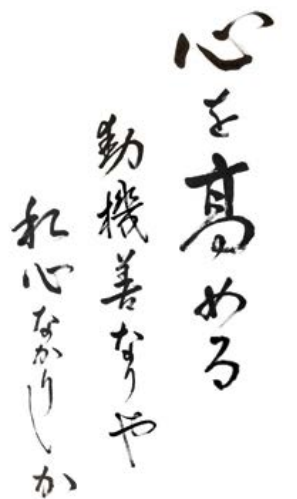 心を高める
動機善なりや
私心なかりしか